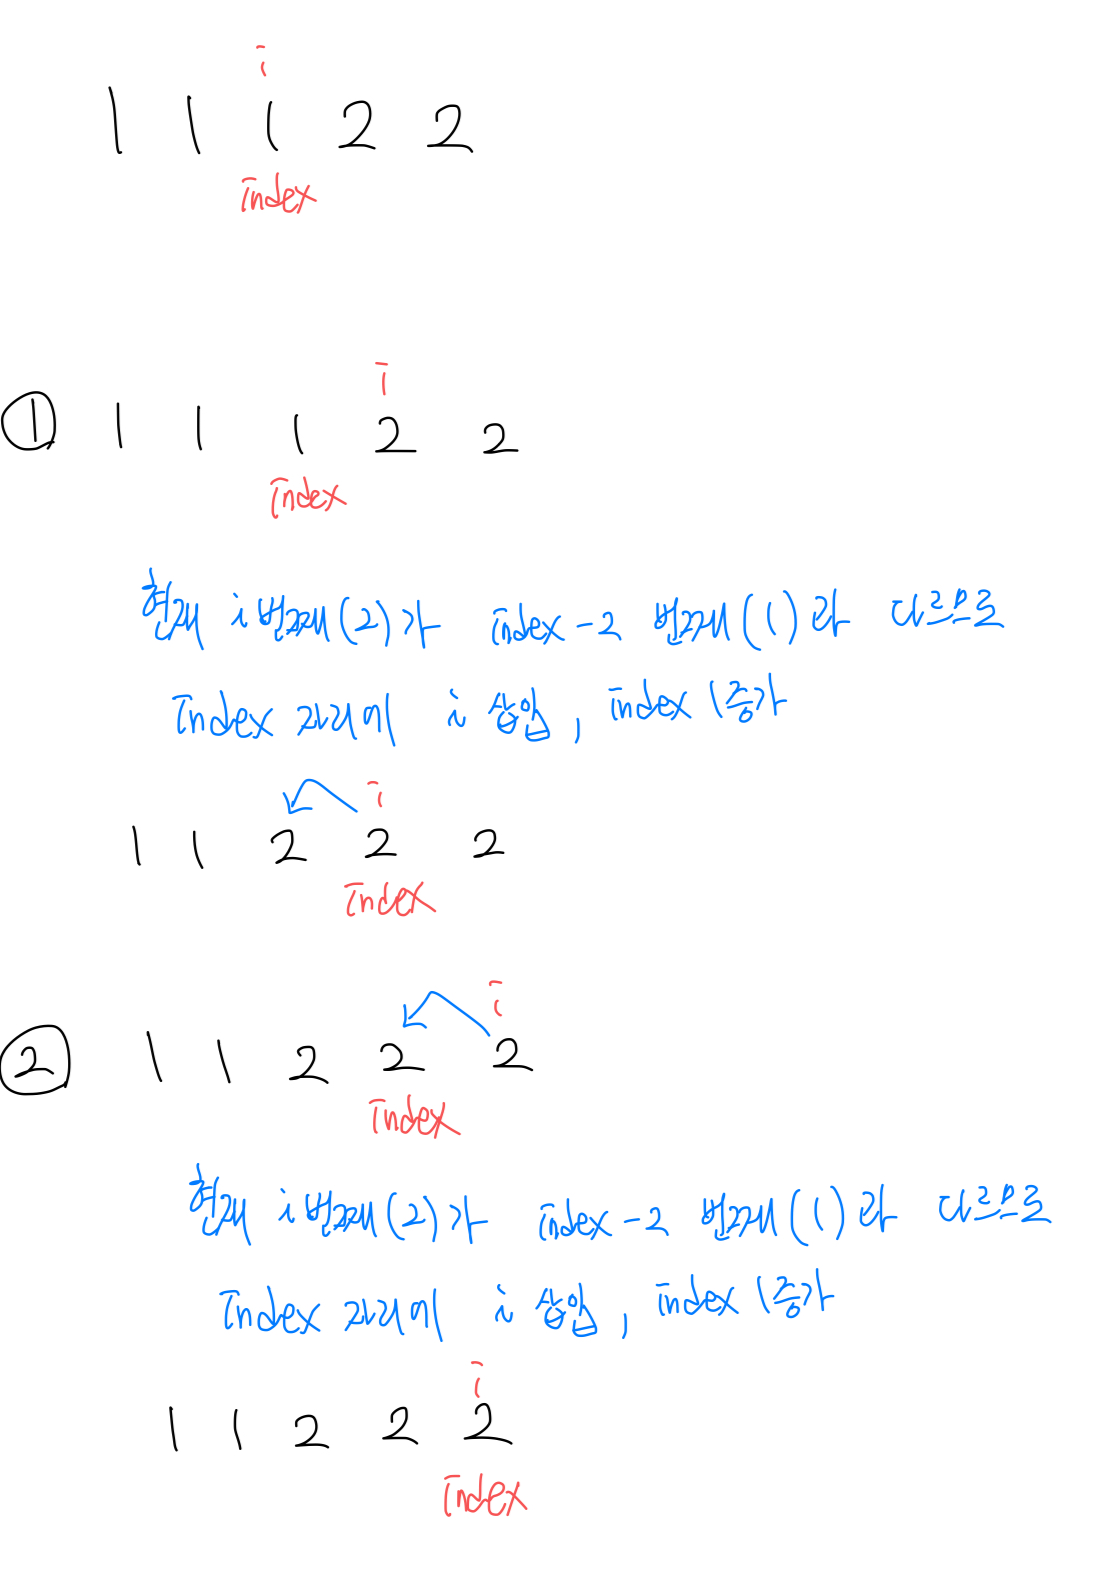 i
1 1 1 2 2
index
i
① 1 1 1 2 2
index
현재 i번째(2)가 index-2 번째(1)랑 다르므로
index 자리에 i 삽입, index 1증가
i
1 1 2 2 2
index
i
② 1 1 2 2 2
index
현재 i번째(2)가 index-2 번째(1)랑 다르므로
index 자리에 i 삽입, index 1증가
i
1 1 2 2 2
index